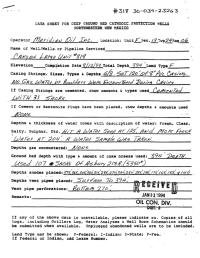 #317 30-039-23263
DATA SHEET FOR DEEP GROUND BED CATHODIC PROTECTION WELLS
NORTHWESTERN NEW MEXICO
Operator Meridian Oil Inc. Location: Unit
Name of Well/Wells or Pipeline Serviced
Elevation Completion Date Total Depth 394 Land Type F
Casing Strings, Sizes, Types & Depths
No Gas, Water, or Boulders Were Encountered During Casing.
If Casing Strings are cemented, show amounts & types used Cemented
WITH 21 Sacks.
If Cement or Bentonite Plugs have been placed, show depths & amounts used
None
Depths & thickness of water zones with description of water: Fresh, Clear,
Salty, Sulphur, Etc. Hit A Water Seep At 185, And More Fresh
Water At 200'. A Water Sample Was Taken.
Depths gas encountered: None
Ground bed depth with type & amount of coke breeze used: 394' Depth.
Depths anodes placed:
Depths vent pipes placed: Surface To 394.
Vent pipe perforations: Bottom 270.
Remarks:
RECEIVED
OIL CON. DIV.
If any of the above data is unavailable, please indicate so. Copies of all
logs, including Drillers Log, Water Analyses & Well Bore Schematics should
be submitted when available. Unplugged abandoned wells are to be included.
Land Type may be shown: F-Federal; I-Indian; S-State; P-Fee.
If Federal or Indian, add Lease Number.